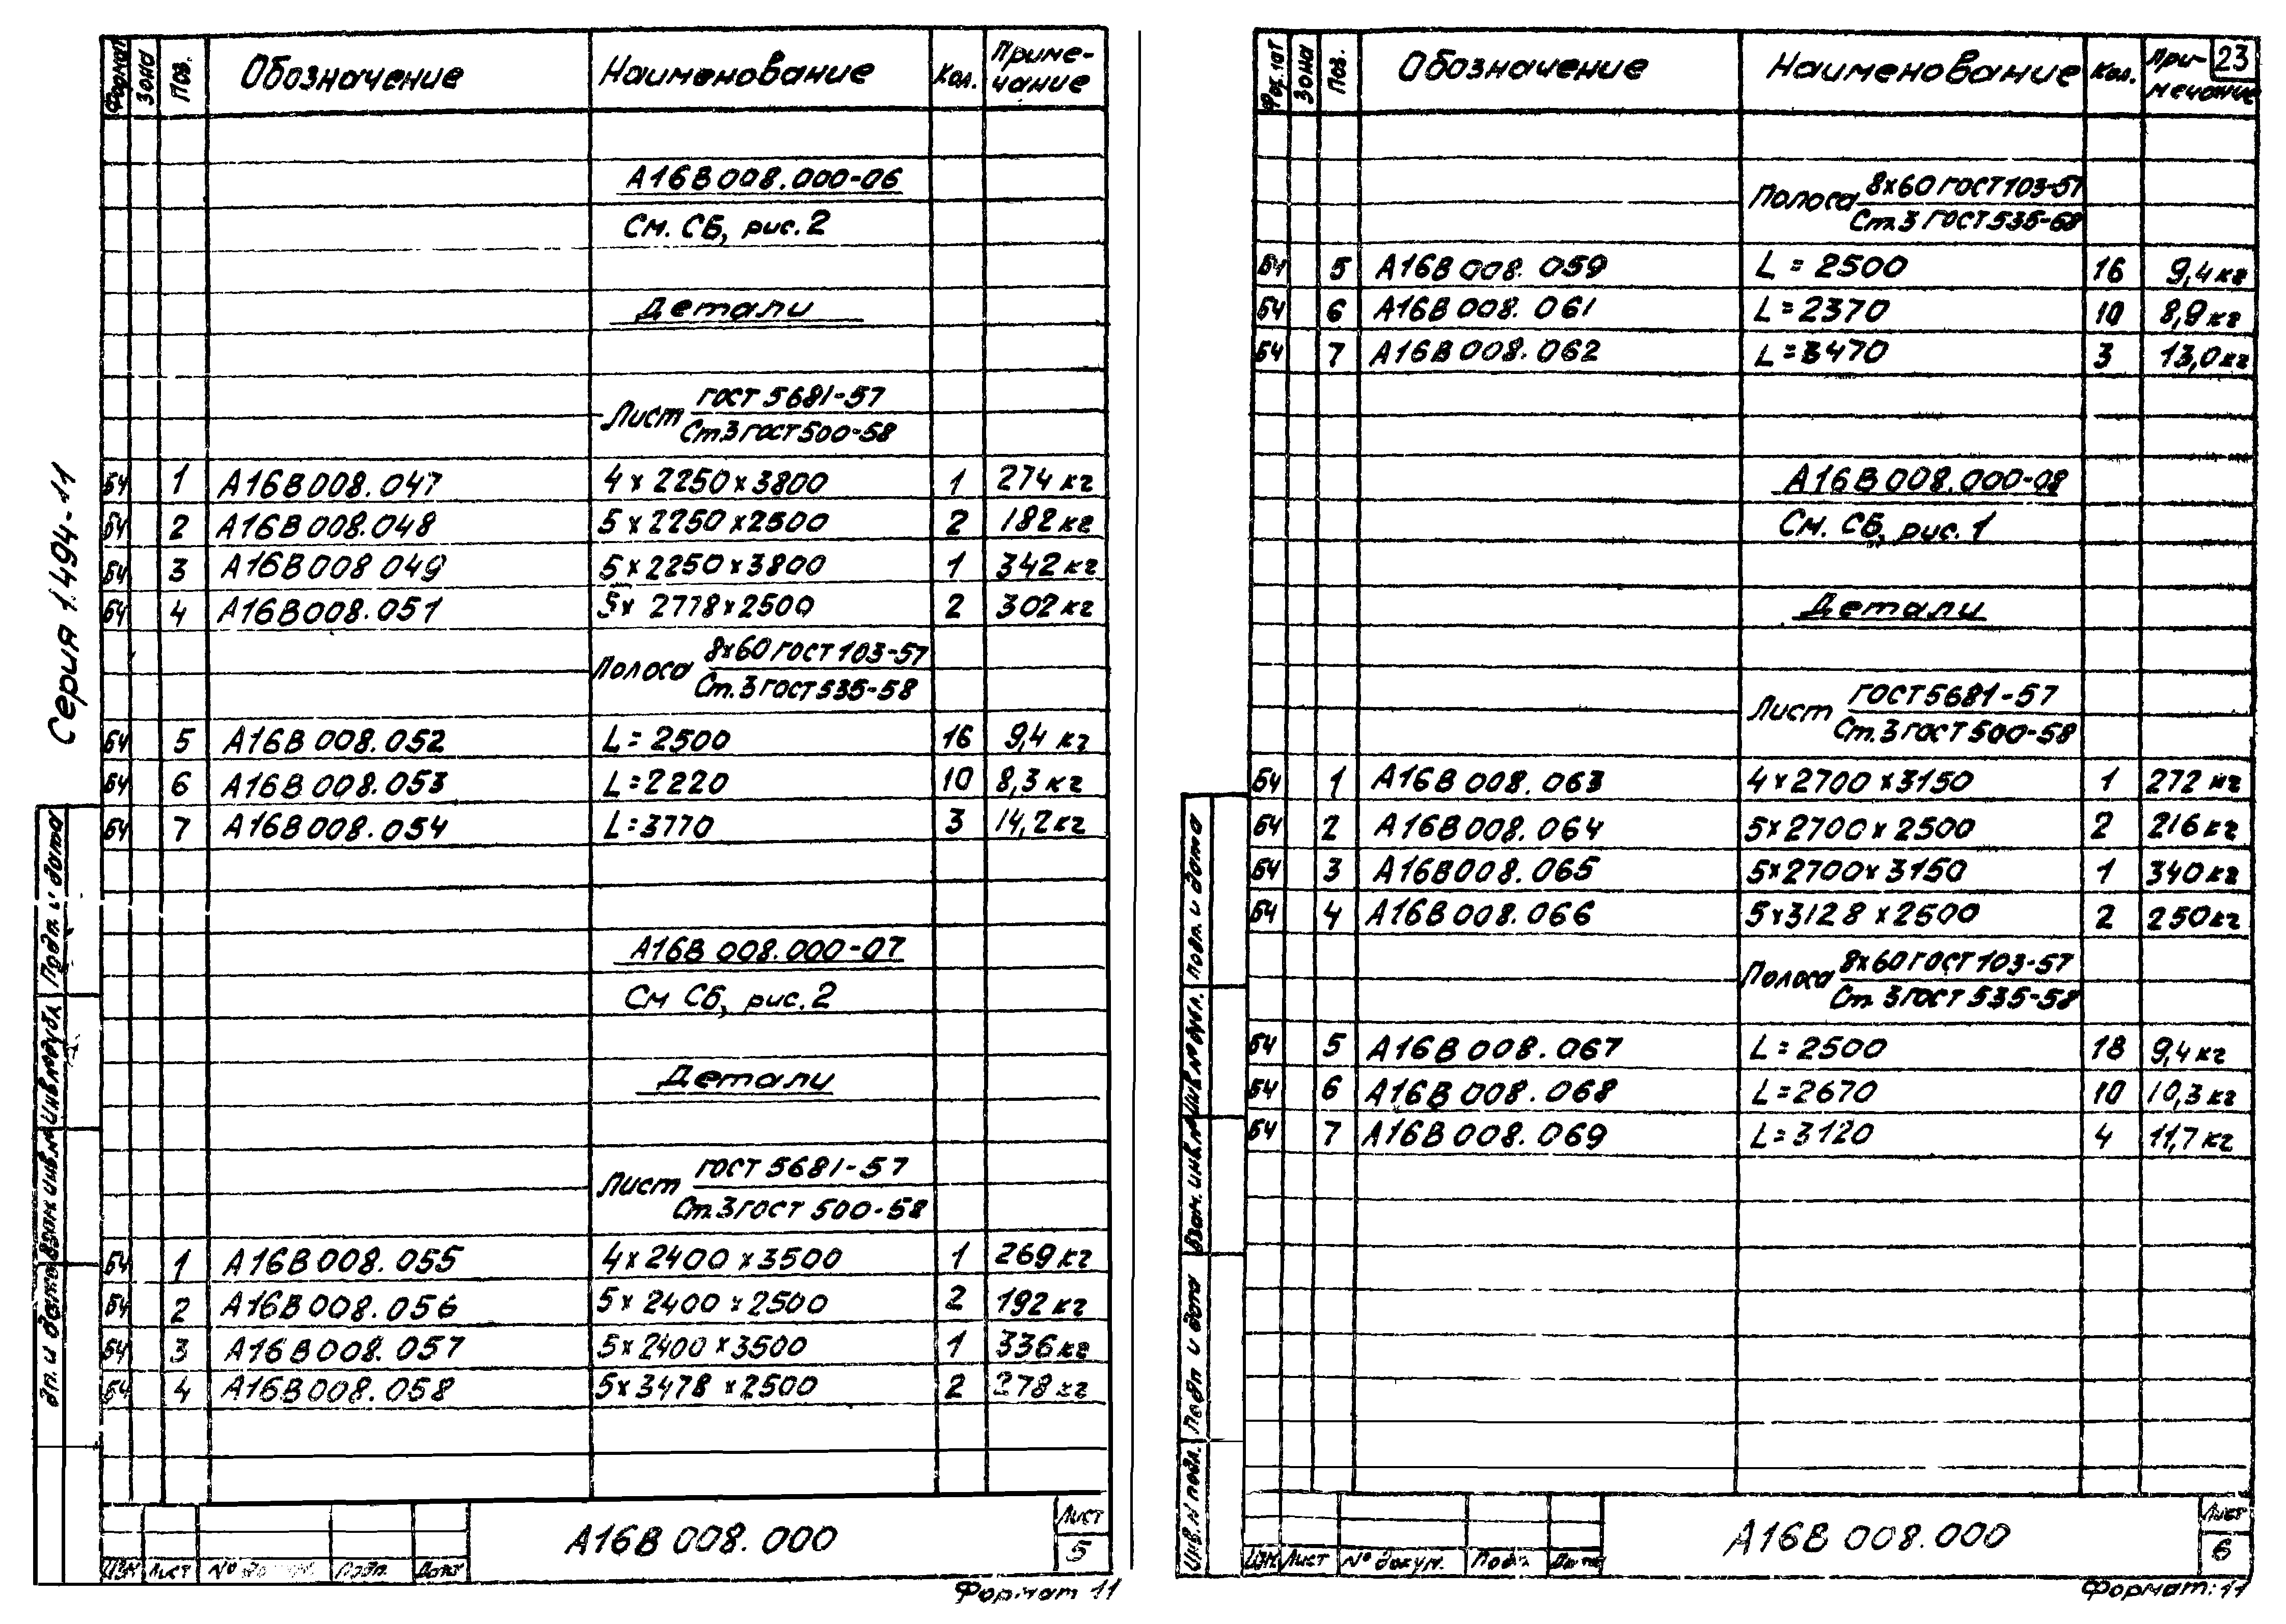 Серия 1.494-11
Формат Зона Поз. Обозначение Наименование Кол. Приме-
чание
А16В008.000-06
См. СБ, рис. 2
Детали
Лист ГОСТ 5681-57
Ст.3 ГОСТ 500-58
БЧ 1 А16В008.047 4 х 2250 х 3800 1 274 кг
БЧ 2 А16В008.048 5 х 2250 х 2500 2 182 кг
БЧ 3 А16В008 049 5 х 2250 х 3800 1 342 кг
БЧ 4 А16В008.051 5х 2778 х 2500 2 302 кг
Полоса 8х60 ГОСТ 103-57
Ст.3 ГОСТ 535-58
БЧ 5 А16В 008.052 L = 2500 16 9,4 кг
БЧ 6 А16В 008.053 L = 2220 10 8,3 кг
БЧ 7 А16В 008.054 L = 3770 3 14,2 кг
А16В 008.000-07
См СБ, рис. 2
Детали
Лист ГОСТ 5681-57
Ст.3 ГОСТ 500-58
БЧ 1 А16В008.055 4 х 2400 х 3500 1 269 кг
БЧ 2 А16В008.056 5 х 2400 х 2500 2 192 кг
БЧ 3 А16В008.057 5 х 2400 х 3500 1 336 кг
БЧ 4 А16В008.058 5 х 3478 х 2500 2 278 кг
Подп. и дата
Инв.№дубл.
Взам.инв.№
дп. и дата
Изм Лист № Подп. Дата
А16В 008.000
Лист
5
Формат 11
Зона Поз. Обозначение Наименование Кол. При-
мечание
23
Полоса 8х60 ГОСТ 103-57
Ст.3 ГОСТ 535-58
БЧ 5 А16В 008. 059 L = 2500 16 9,4 кг
БЧ 6 А16В 008. 061 L = 2370 10 8,9 кг
БЧ 7 А16В 008. 062 L = 3470 3 13,0 кг
А16В 008.000-08
См. СБ, рис. 1
Детали
Лист ГОСТ 5681-57
Ст.3 ГОСТ 500-58
БЧ 1 А16В 008. 063 4 х 2700 х 3150 1 272 кг
БЧ 2 А16В 008. 064 5х 2700 х 2500 2 216 кг
БЧ 3 А16В008. 065 5х2700х 3150 1 340 кг
БЧ 4 А16В 008. 066 5х3128 х 2500 2 250 кг
Полоса 8х60 ГОСТ 103-57
Ст. 3 ГОСТ 535-58
БЧ 5 А16В 008. 067 L = 2500 18 9,4 кг
БЧ 6 А16В 008. 068 L = 2670 10 10,3 кг
БЧ 7 А16В 008. 069 L = 3120 4 11,7 кг
подп. и дата
Инв.№дубл.
Взам. инв.№
Подп и дата
Инв.N подл.
Изм Лист № докум. Подп. Дата
А16В 008.000
Лист
6
Формат: 11